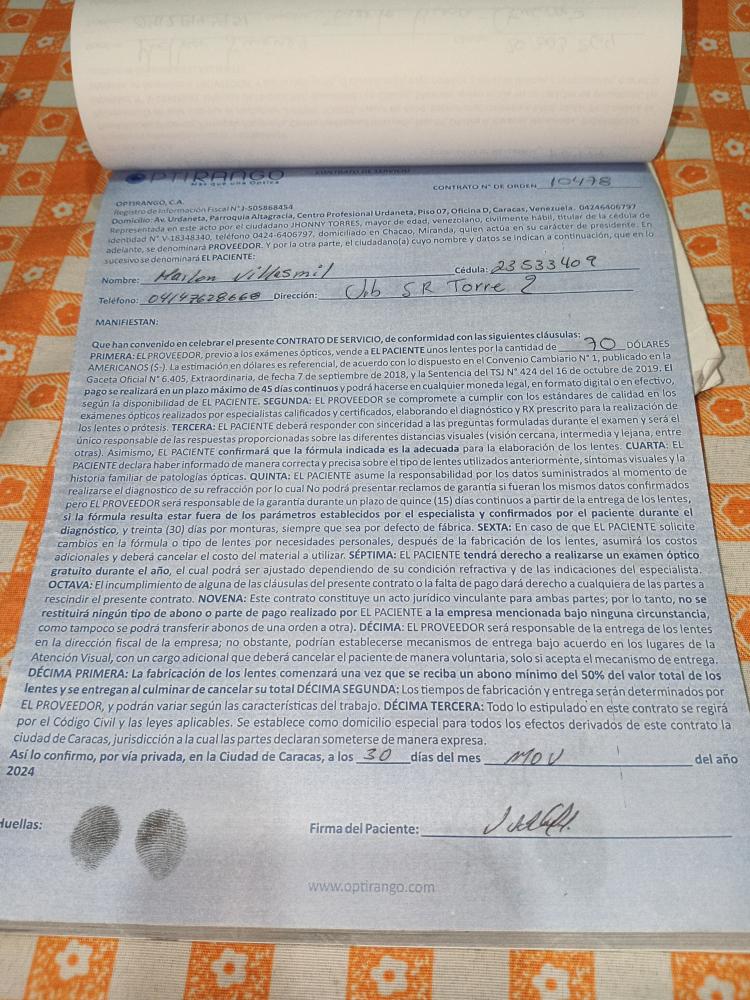 OPTIRANGO
Más que una Óptica
CONTRATO DE SERVICIO
CONTRATO N° DE ORDEN 10478
OPTIRANGO, C.A.
Registro de Información Fiscal N°J-505868454
Domicilio: Av. Urdaneta, Parroquia Altagracia, Centro Profesional Urdaneta, Piso 07, Oficina D, Caracas, Venezuela. 04246406797
Representada en este acto por el ciudadano JHONNY TORRES, mayor de edad, venezolano, civilmente hábil, titular de la cédula de
identidad N° V-18348340, teléfono 0424-6406797, domiciliado en Chacao, Miranda, quien actúa en su carácter de presidente. En
adelante, se denominará PROVEEDOR. Y por la otra parte, el ciudadano(a) cuyo nombre y datos se indican a continuación, que en lo
sucesivo se denominará EL PACIENTE:
Nombre: Marlon Villasmil Cédula: 23533409
Teléfono: 04147628668 Dirección: Urb SR Torre 2
MANIFIESTAN:
Que han convenido en celebrar el presente CONTRATO DE SERVICIO, de conformidad con las siguientes cláusulas:
PRIMERA: EL PROVEEDOR, previo a los exámenes ópticos, vende a EL PACIENTE unos lentes por la cantidad de 70 DÓLARES
AMERICANOS ($-). La estimación en dólares es referencial, de acuerdo con lo dispuesto en el Convenio Cambiario N° 1, publicado en la
Gaceta Oficial N° 6.405, Extraordinaria, de fecha 7 de septiembre de 2018, y la Sentencia del TSJ N° 424 del 16 de octubre de 2019. El
pago se realizará en un plazo máximo de 45 días continuos y podrá hacerse en cualquier moneda legal, en formato digital o en efectivo,
según la disponibilidad de EL PACIENTE. SEGUNDA: EL PROVEEDOR se compromete a cumplir con los estándares de calidad en los
exámenes ópticos realizados por especialistas calificados y certificados, elaborando el diagnóstico y RX prescrito para la realización de
los lentes o prótesis. TERCERA: EL PACIENTE deberá responder con sinceridad a las preguntas formuladas durante el examen y será el
único responsable de las respuestas proporcionadas sobre las diferentes distancias visuales (visión cercana, intermedia y lejana, entre
otras). Asimismo, EL PACIENTE confirmará que la fórmula indicada es la adecuada para la elaboración de los lentes. CUARTA: EL
PACIENTE declara haber informado de manera correcta y precisa sobre el tipo de lentes utilizados anteriormente, síntomas visuales y la
historia familiar de patologías ópticas. QUINTA: EL PACIENTE asume la responsabilidad por los datos suministrados al momento de
realizarse el diagnostico de su refracción por lo cual No podrá presentar reclamos de garantía si fueran los mismos datos confirmados
pero EL PROVEEDOR será responsable de la garantía durante un plazo de quince (15) días continuos a partir de la entrega de los lentes,
si la fórmula resulta estar fuera de los parámetros establecidos por el especialista y confirmados por el paciente durante el
diagnóstico, y treinta (30) días por monturas, siempre que sea por defecto de fábrica. SEXTA: En caso de que EL PACIENTE solicite
cambios en la fórmula o tipo de lentes por necesidades personales, después de la fabricación de los lentes, asumirá los costos
adicionales y deberá cancelar el costo del material a utilizar. SÉPTIMA: EL PACIENTE tendrá derecho a realizarse un examen óptico
gratuito durante el año, el cual podrá ser ajustado dependiendo de su condición refractiva y de las indicaciones del especialista.
OCTAVA: El incumplimiento de alguna de las cláusulas del presente contrato o la falta de pago dará derecho a cualquiera de las partes a
rescindir el presente contrato. NOVENA: Este contrato constituye un acto jurídico vinculante para ambas partes; por lo tanto, no se
restituirá ningún tipo de abono o parte de pago realizado por EL PACIENTE a la empresa mencionada bajo ninguna circunstancia,
como tampoco se podrá transferir abonos de una orden a otra). DÉCIMA: EL PROVEEDOR será responsable de la entrega de los lentes
en la dirección fiscal de la empresa; no obstante, podrían establecerse mecanismos de entrega bajo acuerdo en los lugares de la
Atención Visual, con un cargo adicional que deberá cancelar el paciente de manera voluntaria, solo si acepta el mecanismo de entrega.
DÉCIMA PRIMERA: La fabricación de los lentes comenzará una vez que se reciba un abono mínimo del 50% del valor total de los
lentes y se entregan al culminar de cancelar su total DÉCIMA SEGUNDA: Los tiempos de fabricación y entrega serán determinados por
EL PROVEEDOR, y podrán variar según las características del trabajo. DÉCIMA TERCERA: Todo lo estipulado en este contrato se regirá
por el Código Civil y las leyes aplicables. Se establece como domicilio especial para todos los efectos derivados de este contrato la
ciudad de Caracas, jurisdicción a la cual las partes declaran someterse de manera expresa.
Así lo confirmo, por vía privada, en la Ciudad de Caracas, a los 30 días del mes NOV del año
2024
Huellas:
Firma del Paciente:
www.optirango.com